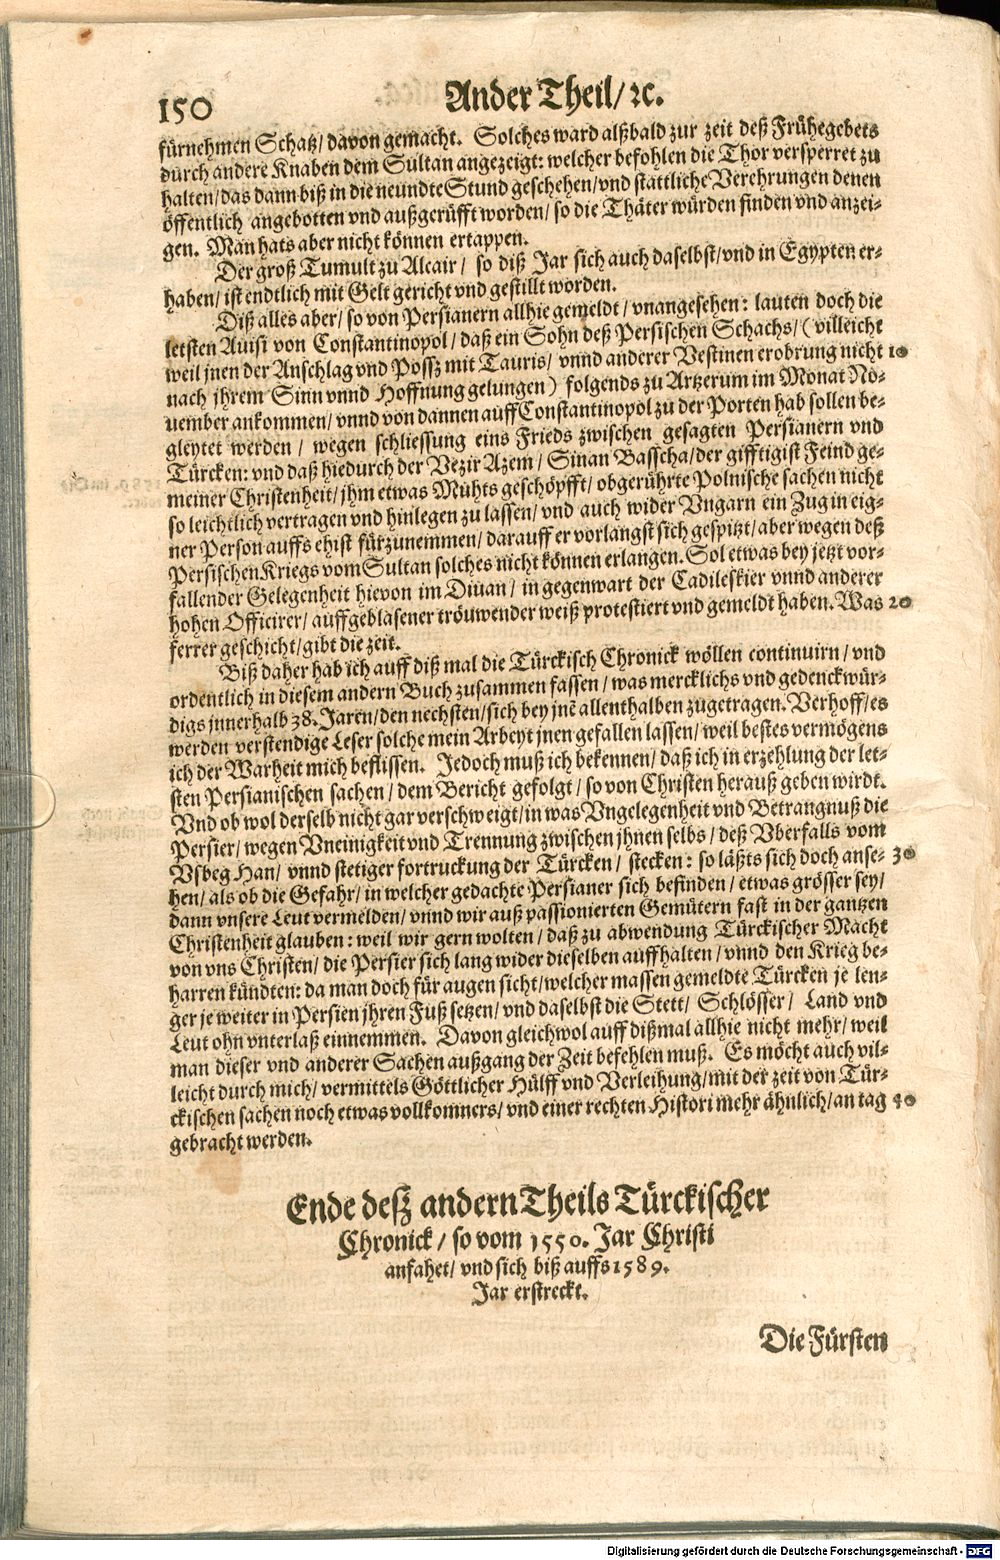 150
Ander Theil/ ꝛc.
fürnehmen Schatz/ davon gemacht. Solches ward alßbald zur zeit deß Frühegebets
durch andere Knaben dem Sultan angezeigt: welcher befohlen die Thor versperret zu
halten/ das dann biß in die neundte Stund geschehen/ vnd stattliche Verehrungen denen
öffentlich angebotten vnd außgerüfft worden/ so die Thäter würden finden vnd anzei-
gen. Man hats aber nicht können ertappen.
Der groß Tumult zu Alcair/ so diß Jar sich auch daselbst/ vnd in Egypten er-
haben/ ist endtlich mit Gelt gericht vnd gestillt worden.
Diß alles aber/ so von Persianern allhie gemeldt/ vnangesehen: lauten doch die
letsten Auisi von Constantinopol/ daß ein Sohn deß Persischen Schachs/ (villeicht
weil jnen der Anschlag vnd Possz mit Tauris/ vnnd anderer Vestinen erobrung nicht 10
nach jhrem Sinn vnnd Hoffnung gelungen) folgends zu Artzerum im Monat No-
uember ankommen/ vnnd von dannen auff Constantinopol zu der Porten hab sollen be-
gleytet werden/ wegen schliessung eins Frieds zwischen gesagten Persianern vnd
Türcken: vnd daß hiedurch der Vezir Azem/ Sinan Basscha/ der gifftigist Feind ge-
meiner Christenheit/ jhm etwas Mühts geschöpfft/ obgerührte Polnische sachen nicht
so leichtlich vertragen vnd hinlegen zu lassen/ vnd auch wider Vngarn ein Zug in eig-
ner Person auffs ehist fürzunemmen/ darauff er vorlangst sich gespitzt/ aber wegen deß
Persischen Kriegs vom Sultan solches nicht können erlangen. Sol etwas bey jetzt vor-
fallender Gelegenheit hievon im Diuan/ in gegenwart der Cadileskier vnnd anderer
hohen Officirer/ auffgeblasener tröuwender weiß protestiert vnd gemeldt haben. Was 20
ferrer geschicht/ gibt die zeit.
Biß daher hab ich auff diß mal die Türckisch Chronick wöllen continuirn/ vnd
ordentlich in diesem andern Buch zusammen fassen/ was mercklichs vnd gedenckwür-
digs jnnerhalb 38. Jaren/ den nechsten/ sich bey jnẽ allenthalben zugetragen. Verhoff/ es
werden verstendige Leser solche mein Arbeyt jnen gefallen lassen/ weil bestes vermögens
ich der Warheit mich beflissen. Jedoch muß ich bekennen/ daß ich in erzehlung der let-
sten Persianischen sachen/ dem Bericht gefolgt/ so von Christen herauß geben wirdt.
Vnd ob wol derselb nicht gar verschweigt/ in was Vngelegenheit vnd Betrangnuß die
Persier/ wegen Vneinigkeit vnd Trennung zwischen jhnen selbs/ deß Vberfalls vom
Vsbeg Han/ vnnd stetiger fortruckung der Türcken/ stecken: so läßts sich doch anse- 30
hen/ als ob die Gefahr/ in welcher gedachte Persianer sich befinden/ etwas grösser sey/
dann vnsere Leut vermelden/ vnnd wir auß passionierten Gemütern fast in der gantzen
Christenheit glauben: weil wir gern wolten/ daß zu abwendung Türckischer Macht
von vns Christen/ die Persier sich lang wider dieselben auffhalten/ vnnd den Krieg be-
harren kündten: da man doch für augen sicht/ welcher massen gemeldte Türcken je len-
ger je weiter in Persien jhren Fuß setzen/ vnd daselbst die Stett/ Schlösser/ Land vnd
Leut ohn vnterlaß einnemmen. Davon gleichwol auff dißmal allhie nicht mehr/ weil
man dieser vnd anderer Sachen außgang der Zeit befehlen muß. Es möcht auch vil-
leicht durch mich/ vermittels Göttlicher Hülff vnd Verleihung/ mit der zeit von Tür-
ckischen sachen noch etwas vollkomners/ vnd einer rechten Histori mehr ähnlich/ an tag 40
gebracht werden.
Ende desz andern Theils Türckischer
Chronick/ so vom 1550. Jar Christi
anfahet/ vnd sich biß auffs 1589.
Jar erstreckt.
Die Fürsten
Digitalisierung gefördert durch die Deutsche Forschungsgemeinschaft - DFG